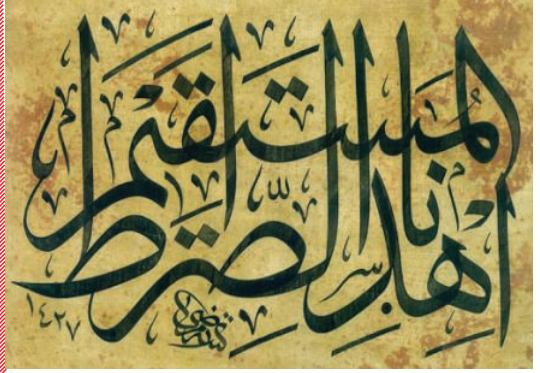 اهْدِنَا الصِّرَاطَ
الْمُسْتَقِيمَ
١٤٢٧